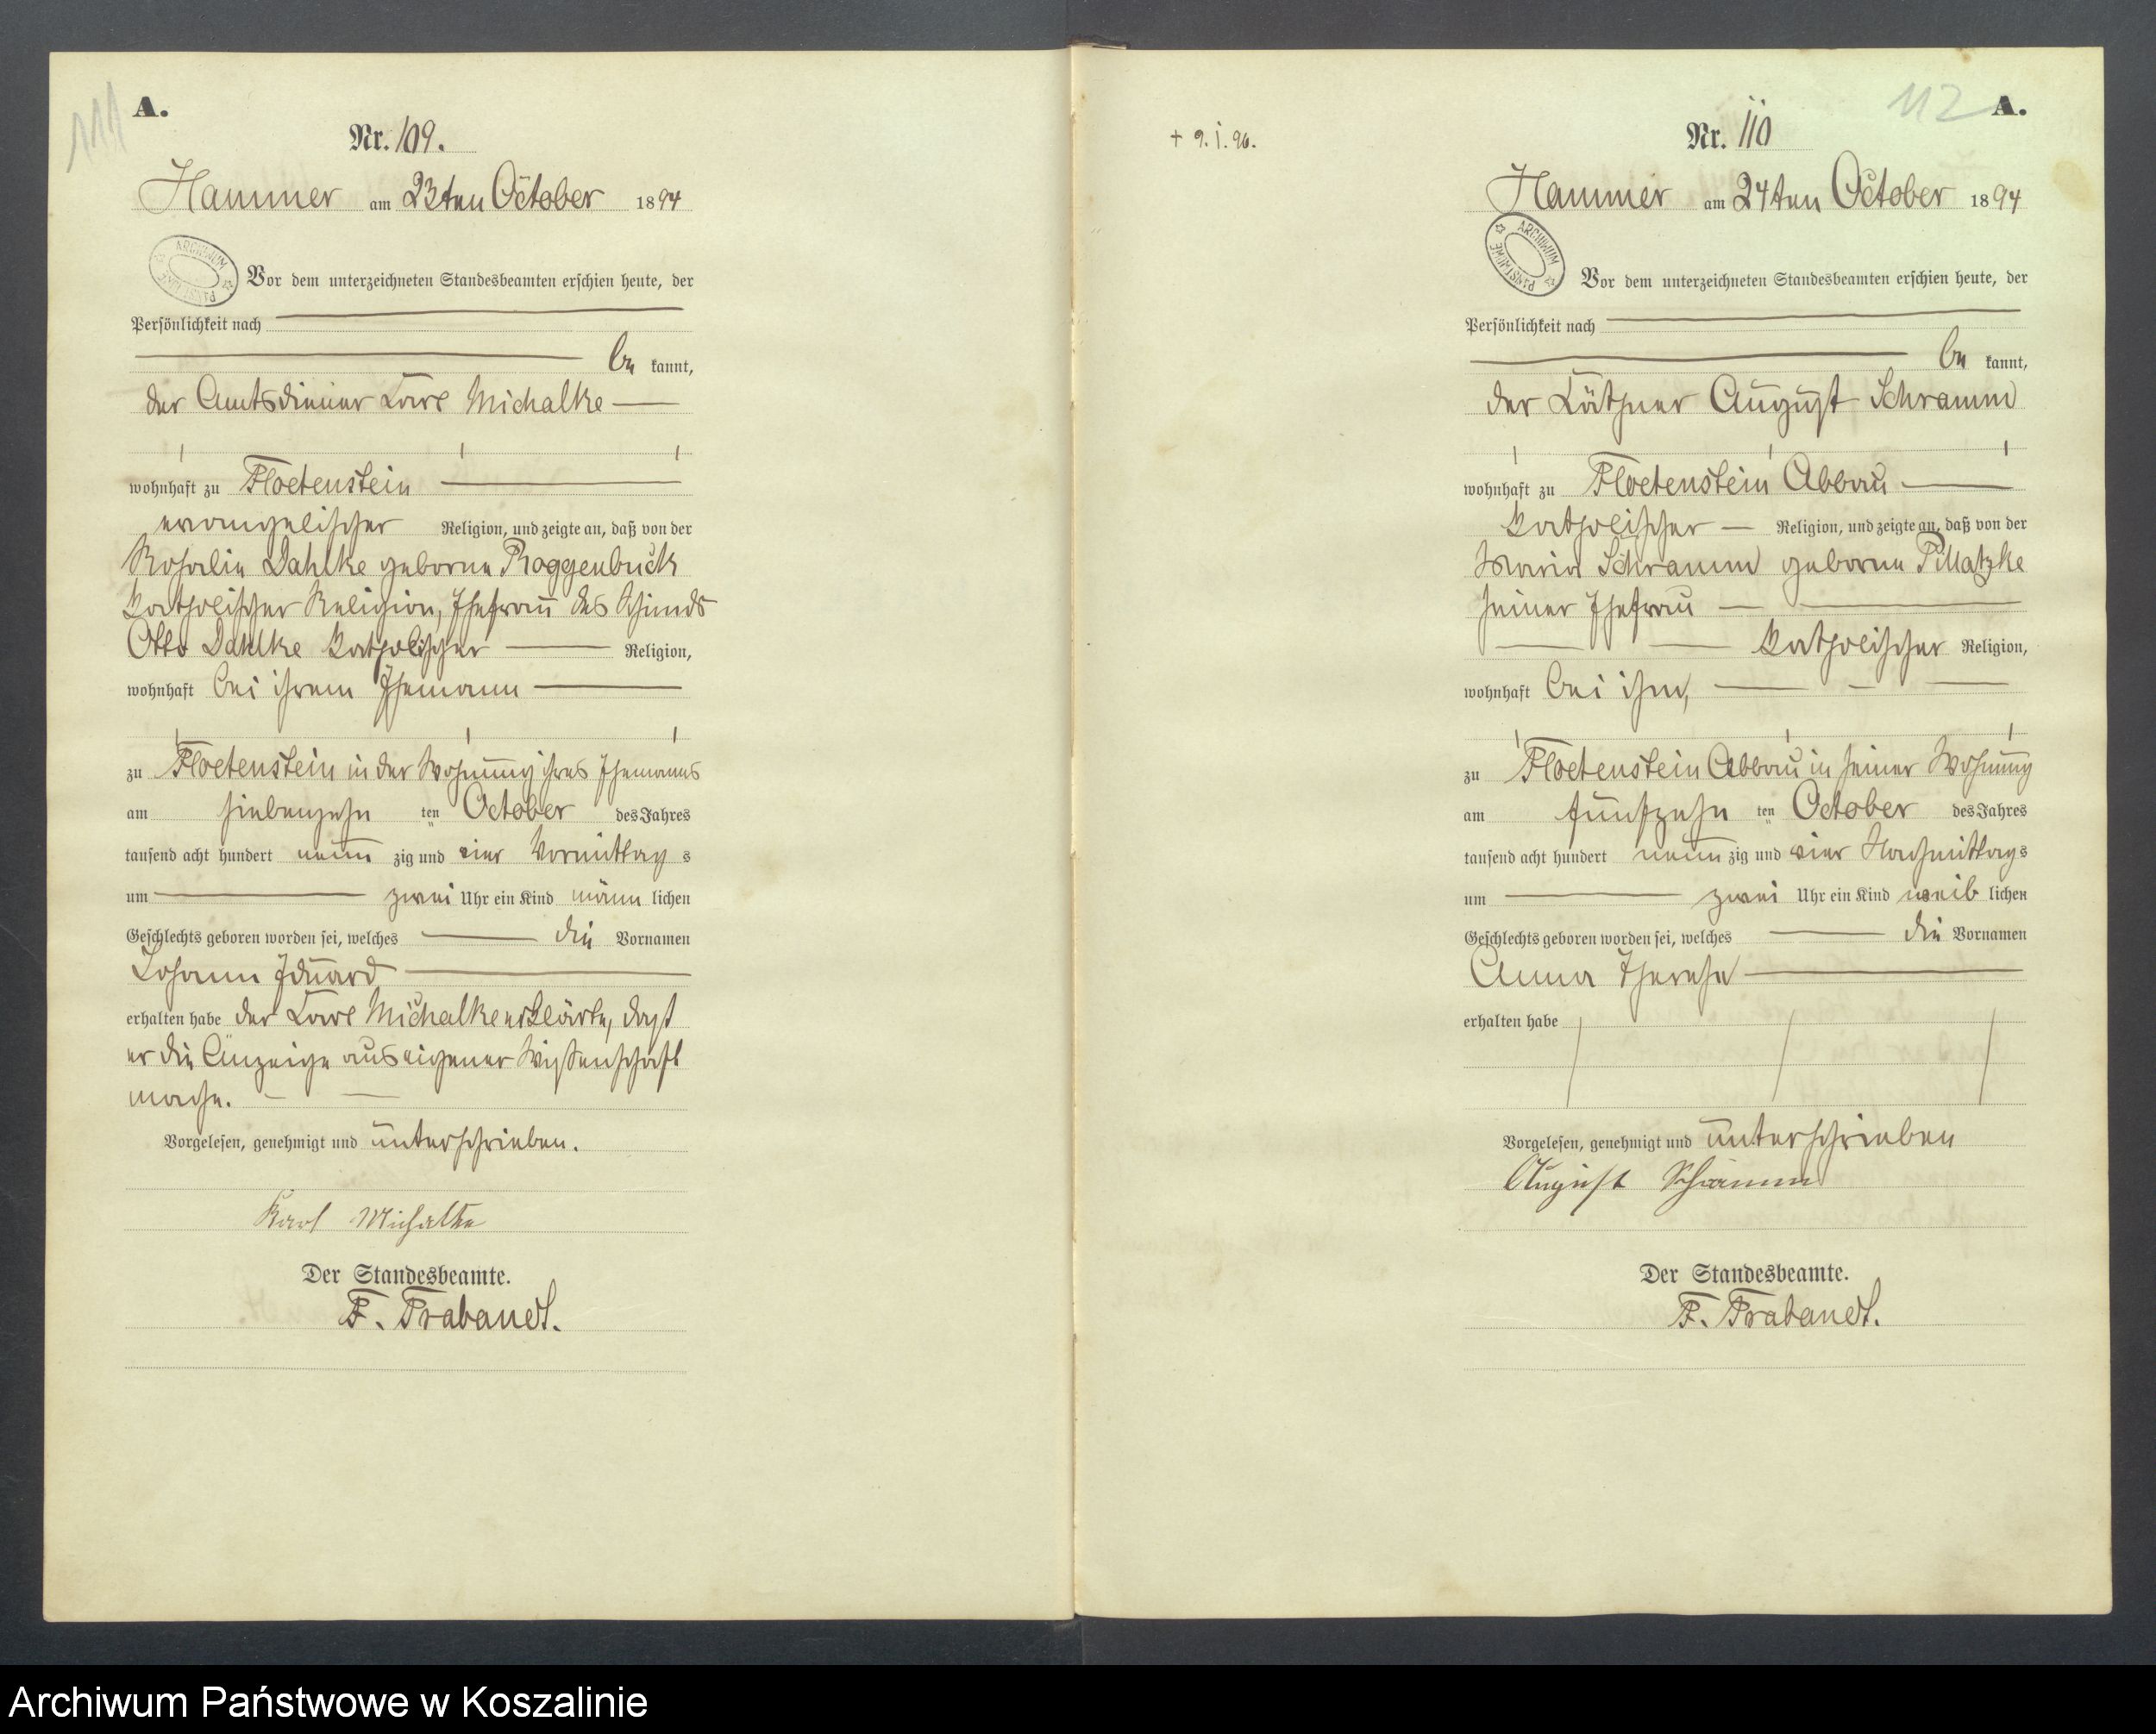 111
A.
Nr. 109.
Hammer am 23ten October 1894
ARCHIWUM PAŃSTWOWE
Vor dem unterzeichneten Standesbeamten erschien heute, der
Persönlichkeit nach
be kannt,
der Amtsdiener Karl Michalke
wohnhaft zu Floetenstein
evangelischer Religion, und zeigte an, daß von der
Rosalie Dahlke geborne Roggenbuck
katholischer Religion, Ehefrau des
Otto Dahlke katholischer Religion,
wohnhaft bei ihrem Ehemann
zu Floetenstein in der Wohnung ihres Ehemanns
am siebenzehn ten October des Jahres
tausend acht hundert neun zig und vier Vormittag s
um zwei Uhr ein Kind männ lichen
Geschlechts geboren worden sei, welches die Vornamen
Johann Eduard
erhalten habe der Karl Michalke erklärte, dass
er die Anzeige aus eigener Wissenschaft
mache.
Vorgelesen, genehmigt und unterschrieben.
Karl Michalke
Der Standesbeamte.
F. Trabandt.
+ 9. I. 96.
112
A.
Nr. 110
Hammer am 24ten October 1894
ARCHIWUM PAŃSTWOWE
Vor dem unterzeichneten Standesbeamten erschien heute, der
Persönlichkeit nach
be kannt,
der Käthner August Schramm
wohnhaft zu Floetenstein Abbau
katholischer Religion, und zeigte an, daß von der
Maria Schramm geborne Pillatzke
seiner Ehefrau
katholischer Religion,
wohnhaft bei ihm,
zu Floetenstein Abbau in seiner Wohnung
am fünfzehn ten October des Jahres
tausend acht hundert neun zig und vier Nachmittag s
um zwei Uhr ein Kind weib lichen
Geschlechts geboren worden sei, welches die Vornamen
Anna Therese
erhalten habe
Vorgelesen, genehmigt und unterschrieben
August Schramm
Der Standesbeamte.
F. Trabandt.
Archiwum Państwowe w Koszalinie